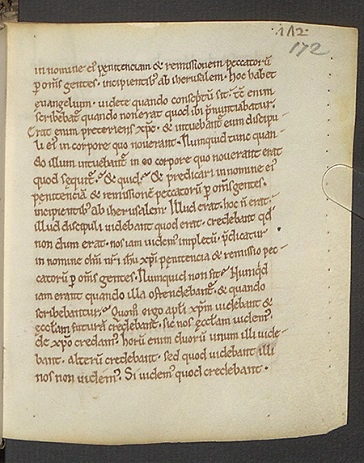 ·112·
172
in nomine ei᾽ penitenciam & remissionem peccatorū
p om̄s gentes · incipientib᾽ ab iherusalem · hoc habet
euangelium · uidete quando conscptū sit · tc̄ enim
scribebat᾽ quando non erat quod ibi p̄nuntiabatur ·
Erat enim preteriens xp̄c · & intuebant᾽ eum discipu-
li ei᾽ in corpore quo nouerant · Nunquid tunc quan-
do illum intuebant᾽ in eo corpore quo nouerant erat
quod sequit᾽ · & quid · & predicari in nomine ei᾽
penitenciā & remissionē peccatorū p om̄s gentes ·
incipientib᾽ ab iherusalem · Illud erat · hoc ñ erat ·
illud discipuli uidebant quod erat · credebant qđ
non dum erat · nos iam uidem᾽ impletū · p̄dicatur
in nomine dn̄i nr̄i ihū xp̄i penitencia & remissio pec-
catorū p om̄s gentes · Nunquid non sit · Nunqđ
iam erant quando illa ostendebant᾽ · & quando
scribebantur · Quom᾽ ergo apl̄i xp̄m uidebant &
eccl̄am futurā credebant · sic nos eccl̄am uidem᾽
de xp̄o credam᾽ · horū enim duorū unum illi uide-
bant · alterū credebant · sed quod uidebant illi
nos non uidem᾽ · Si uidem᾽ quod credebant ·